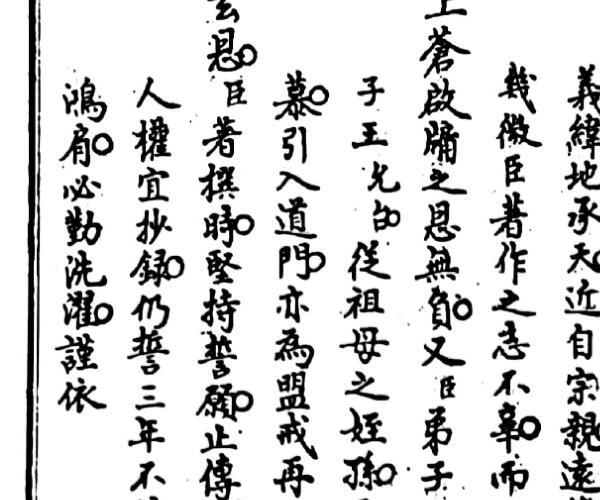 義緯地承天近自宗親遠
幾微臣著作之志不辜而
上蒼啟牖之恩無負又臣弟子
子王允台從祖母之姪孫
慕引入道門亦為盟戒再
玄恩臣著撰時堅持誓願止傳
人權宜抄録仍誓三年不
鴻肩必勤洗濯謹依